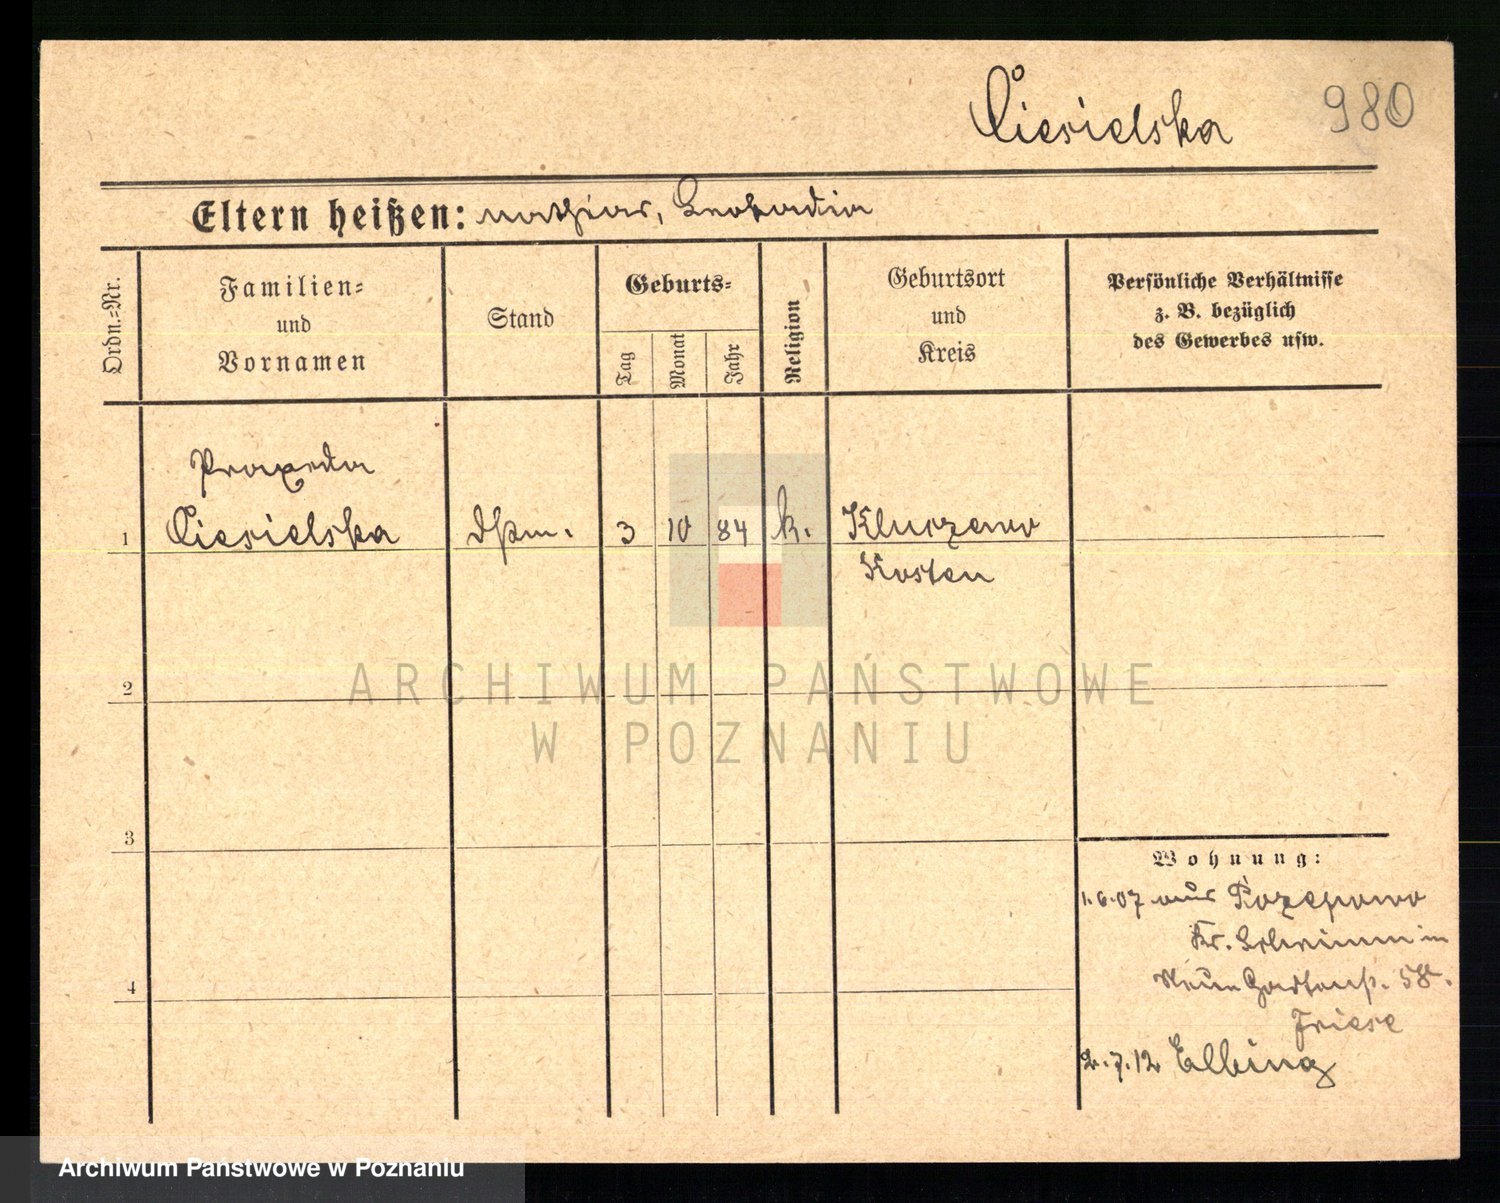 Ciesielska 980
Eltern heißen: Mathias, Leokadia
Ordn.-Nr.
Familien-
und
Vornamen
Stand
Geburts-
Tag
Monat
Jahr
Religion
Geburtsort
und
Kreis
Persönliche Verhältnisse
z. B. bezüglich
des Gewerbes usw.
Praxeda
1 Ciesielska 3 10 84 k. Kluczewo
Kosten
2
3
4
ARCHIWUM PAŃSTWOWE
W POZNANIU
Wohnung:
1.6.07 aus
Kr. Schrimm in
Neue Gartenst. 58.
Friese
2.7.12 Elbing
Archiwum Państwowe w Poznaniu